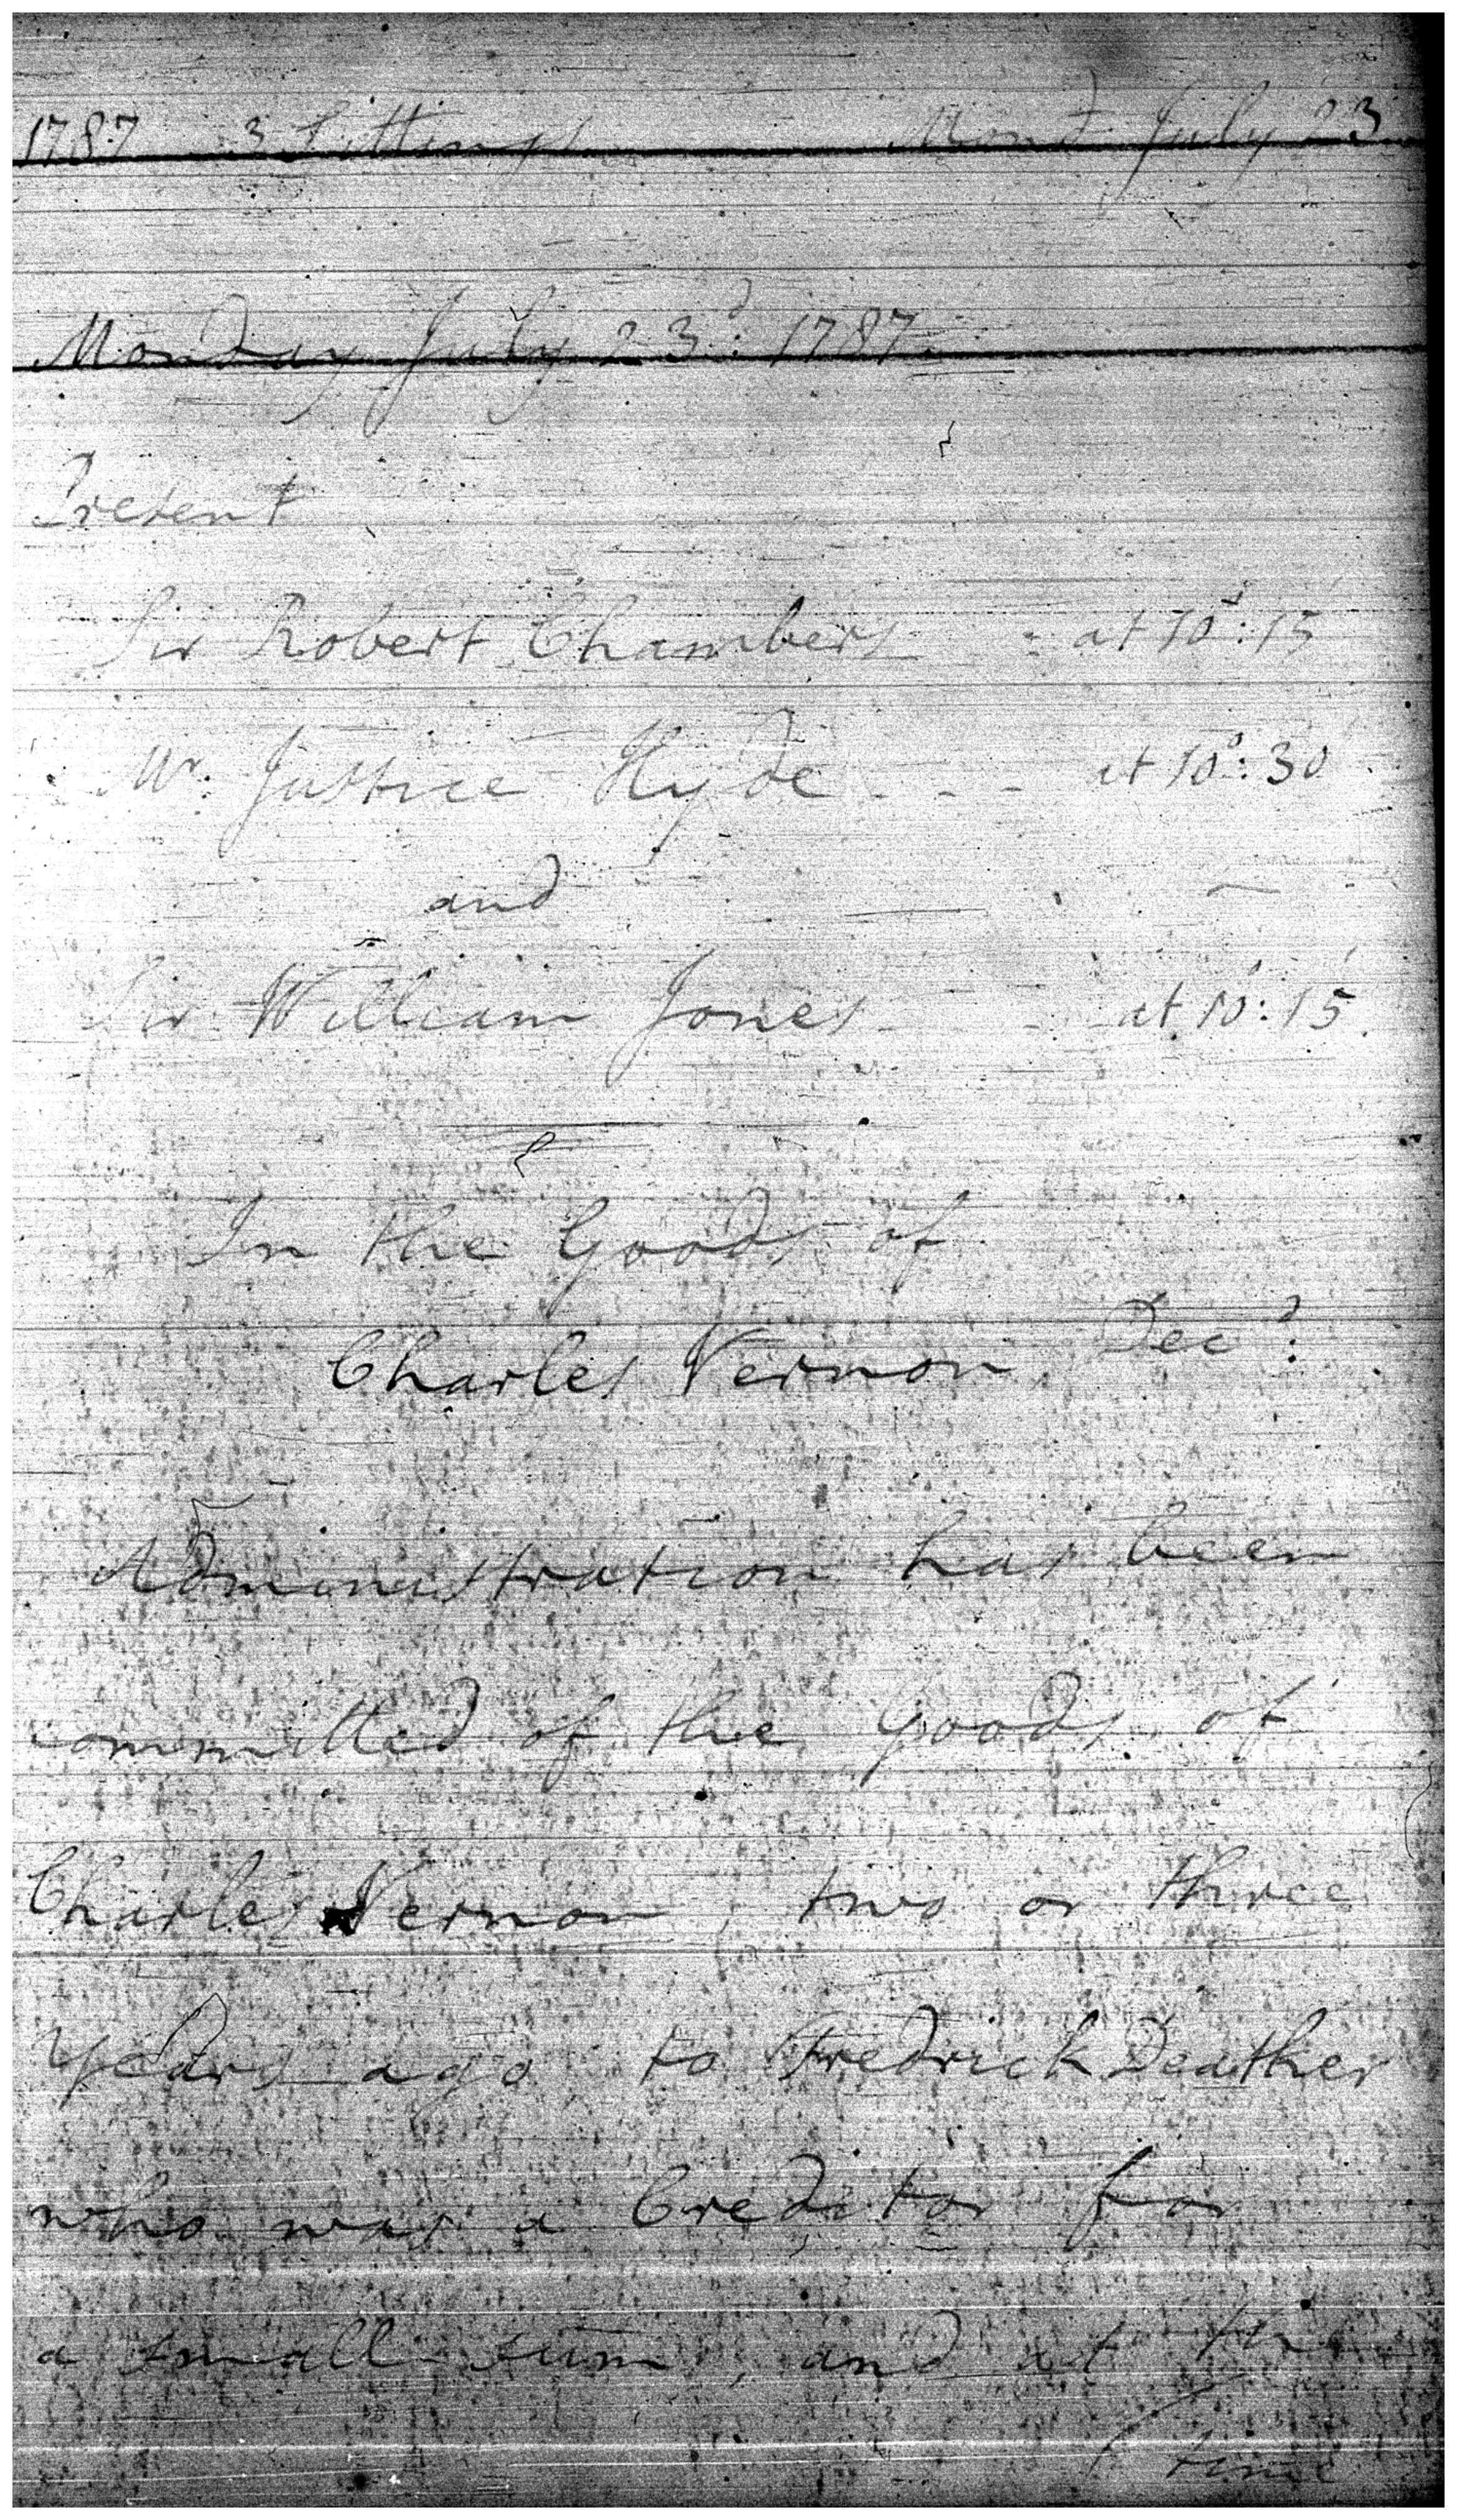 1787 3 Sittings Mond July 23
Monday July 23d. 1787.
Present
Sir Robert Chambers - at 10°: 15'
Mr. Justice Hyde - - - at 10°: 30'
and
Sir William Jones - - at 10°: 15'
In the Goods of
Charles Vernon Decd.
Administration has been
committed of the Goods of
Charles Vernon, two or three
years ago, to Fredrick Deather
who was a Creditor for
a small sum, and at the
time